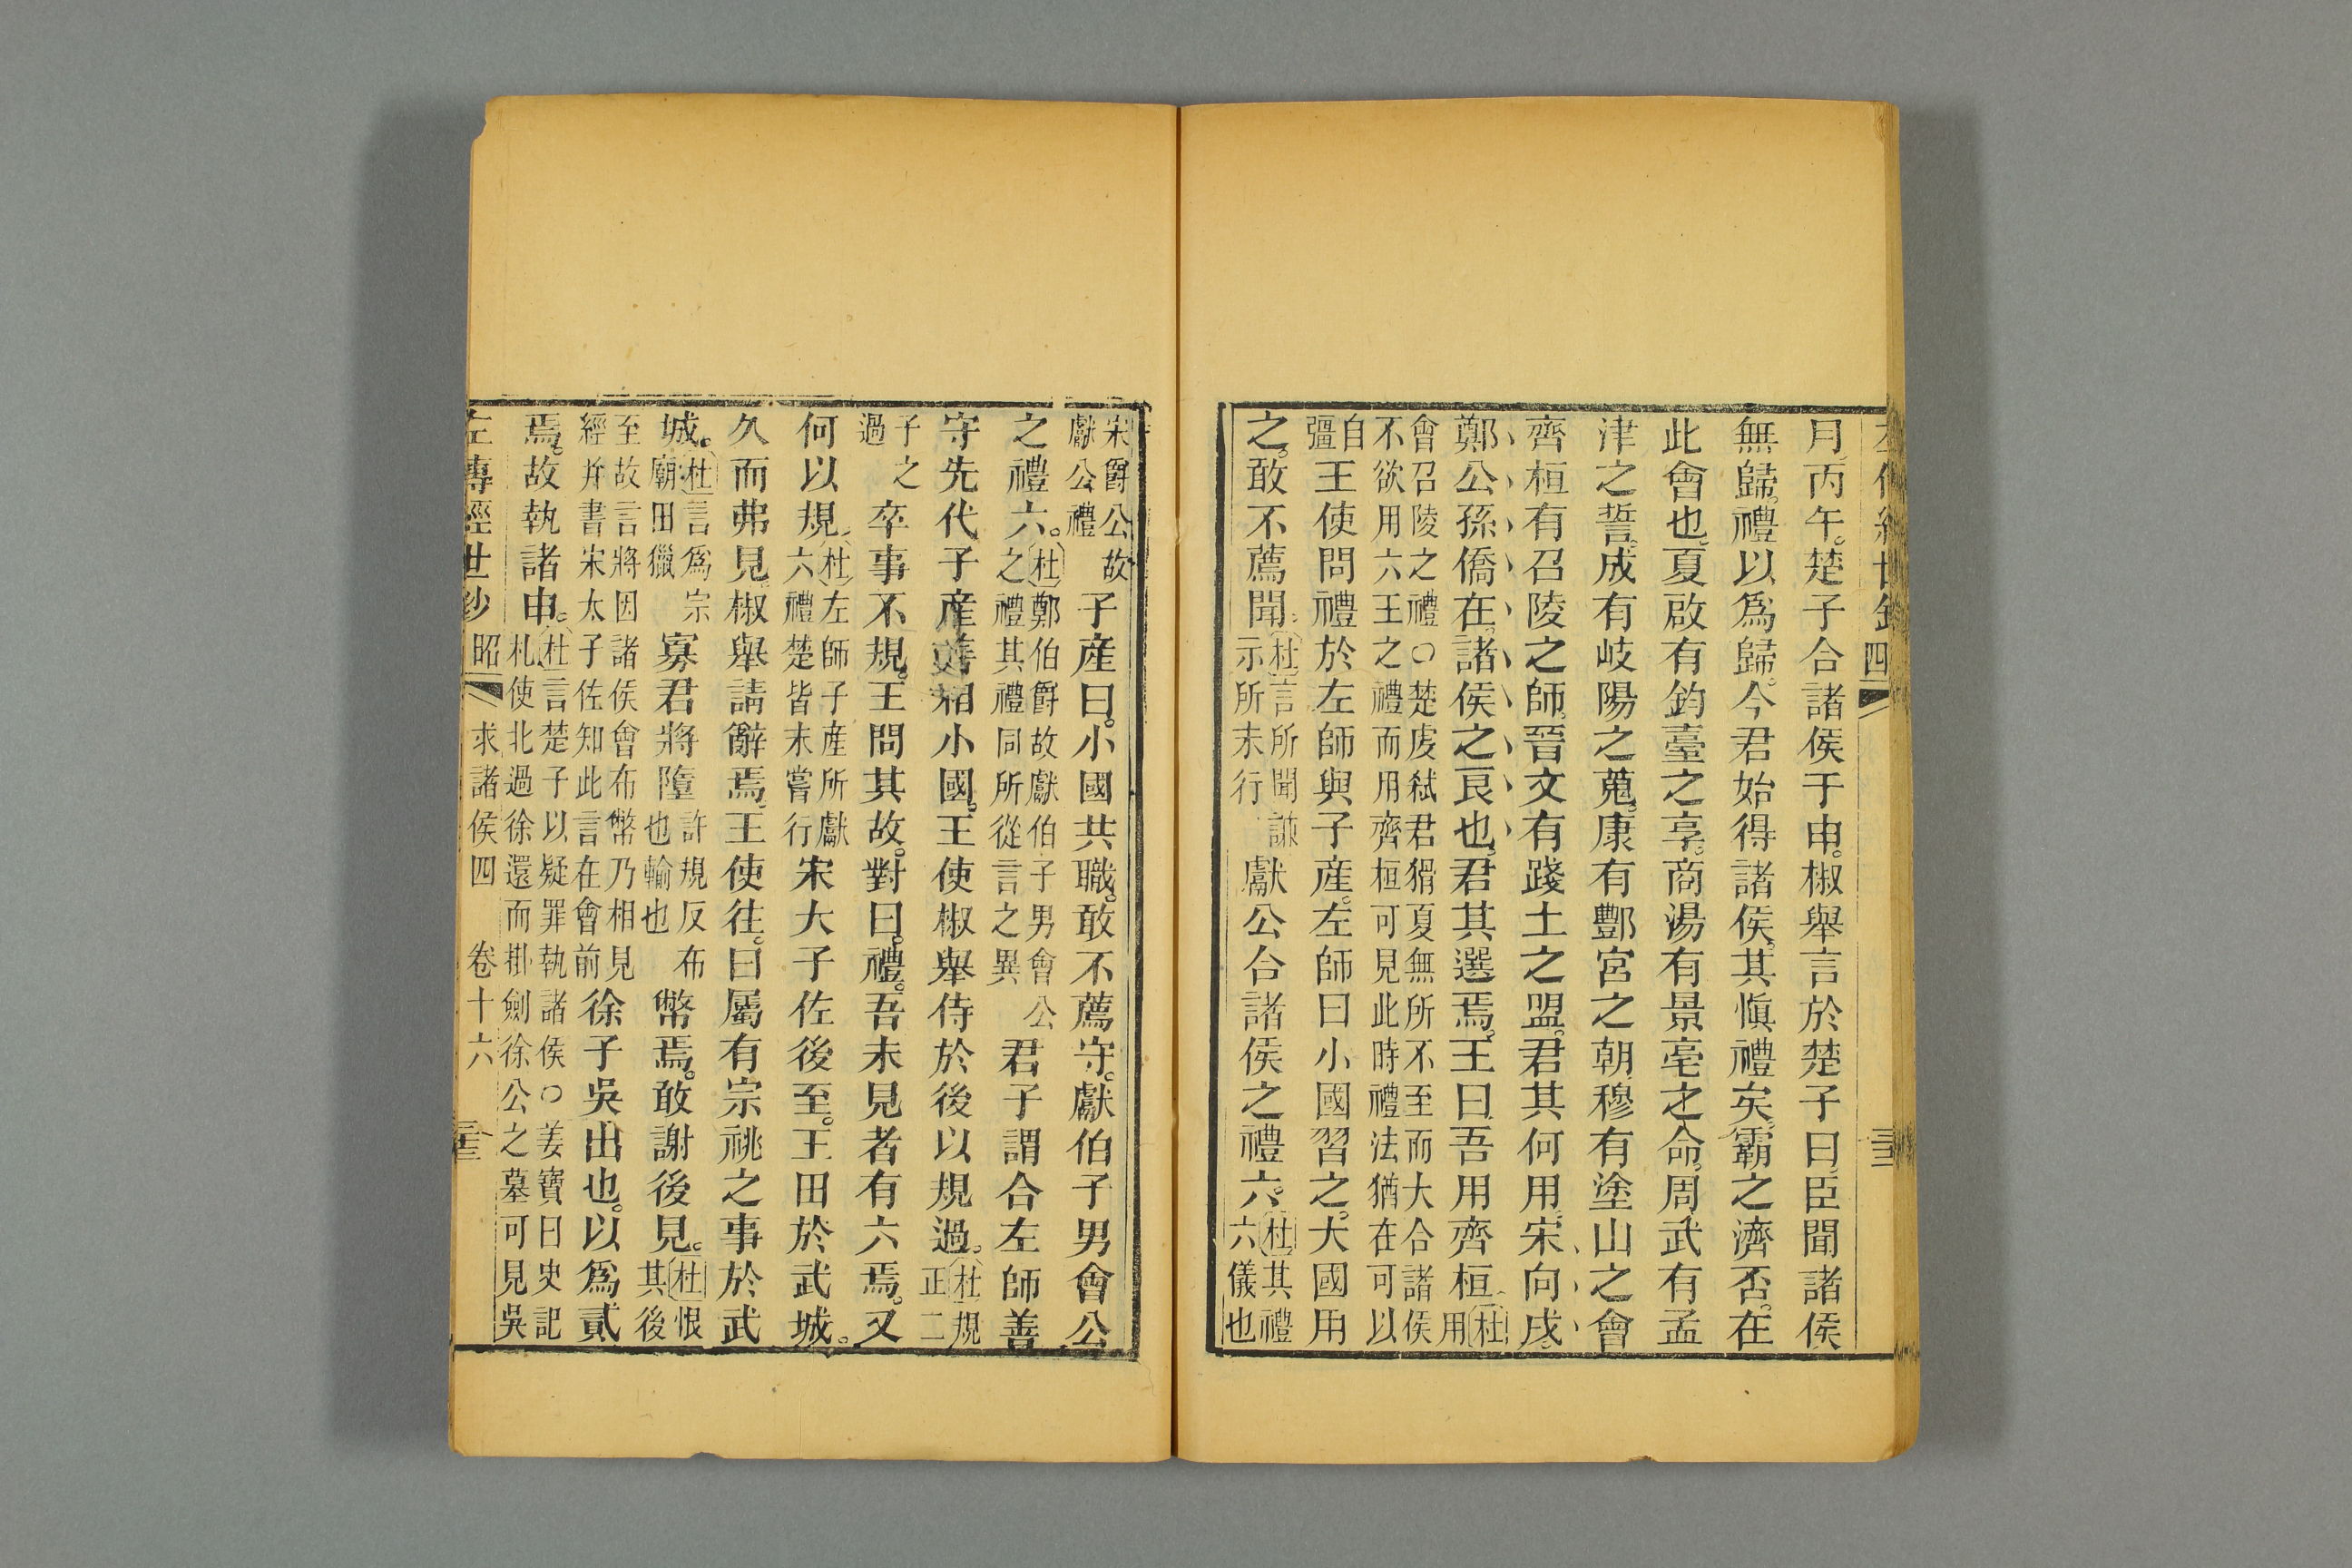 月丙午。楚子合諸侯于申。椒舉言於楚子曰。臣聞諸侯
無歸。禮以爲歸。今君始得諸侯。其愼禮矣。霸之濟否。在
此會也。夏啟有鈞臺之享。商湯有景亳之命。周武有孟
津之誓。成有岐陽之蒐。康有酆宮之朝。穆有塗山之會
齊桓有召陵之師。晉文有踐土之盟。君其何用。宋向戌。
鄭公孫僑在。諸侯之良也。君其選焉。王曰。吾用齊桓。杜用
會召陵之禮○楚虔弑君猾夏無所不至而大合諸侯
不欲用六王之禮而用齊桓可見此時禮法猶在可以
自
彊
王使問禮於左師與子産。左師曰小國習之。大國用
之。敢不薦聞。杜言所聞謙
示所未行
獻公合諸侯之禮六。杜其禮
六儀也
宋爵公故
獻公禮
子産曰。小國共職。敢不薦守。獻伯子男會公
之禮六。杜鄭伯爵故獻伯子男會公
之禮其禮同所從言之異
君子謂合左師善
守先代子産善相小國。王使椒舉侍於後以規過。杜規
正二
子之
過
卒事不規。王問其故。對曰。禮。吾未見者有六焉。又
何以規。杜左師子産所獻
六禮楚皆未嘗行
宋大子佐後至。王田於武城。
久而弗見。椒舉請辭焉。王使往。曰屬有宗祧之事於武
城。杜言爲宗
廟田獵
寡君將隳許規反布
也輸也
幣焉。敢謝後見。杜恨
其後
至故言將因諸侯會布幣乃相見
經幷書宋太子佐知此言在會前
徐子吳出也。以爲貳
焉。故執諸申。杜言楚子以疑罪執諸侯○姜寶曰史記
札使北過徐還而掛劍徐公之墓可見吳
左傳經世鈔 昭 求諸侯四 卷十六